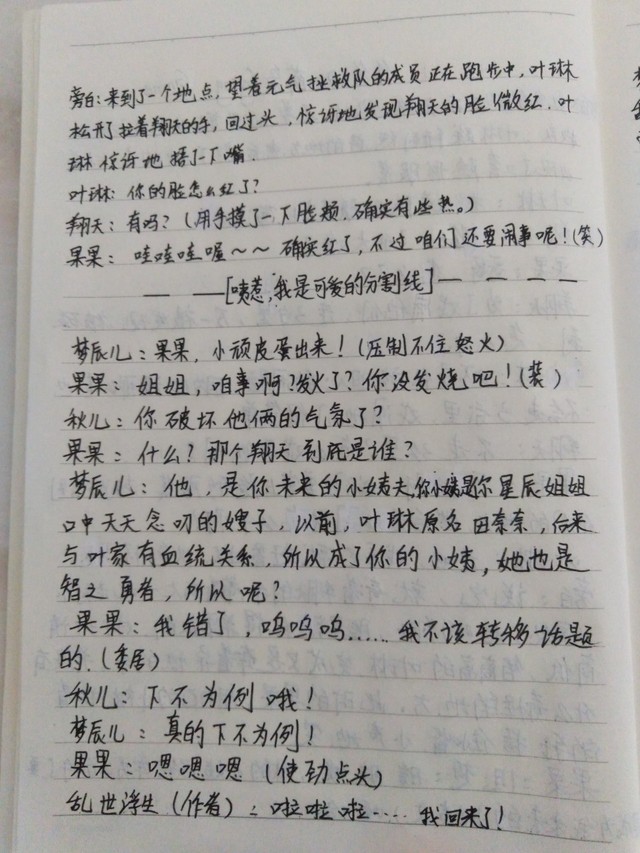 旁白:来到了一个地点,望着元气拯救队的成员正在跑步中,叶琳
松开了拉着翔天的手,回过头,惊讶地发现翔天的脸微红.叶
琳惊讶地捂了一下嘴.
叶琳:你的脸怎么红了?
翔天:有吗?(用手摸了一下脸颊.确实有些热。)
果果:哇哇哇喔~~确实红了,不过咱们还要闹事呢!(笑)
— —[咦惹,我是可爱的分割线]— — — —
梦辰儿:果果,小顽皮蛋出来!(压制不住怒火)
果果:姐姐,咱事啊?发火了?你没发烧吧!(装)
秋儿:你破坏他俩的气氛了?
果果:什么?那个翔天到底是谁?
梦辰儿:他,是你未来的小姨夫,你小姨是你星辰姐姐
口中天天念叨的嫂子,以前,叶琳原名田奈奈,后来
与叶家有血统关系,所以成了你的小姨,她也是
智之勇者,所以呢?
果果:我错了,呜呜呜......我不该转移话题
的.(委屈)
秋儿:下不为例哦!
梦辰儿:真的下不为例!
果果:嗯嗯嗯(使劲点头)
乱世浮生(作者):啦啦啦.....我回来了!